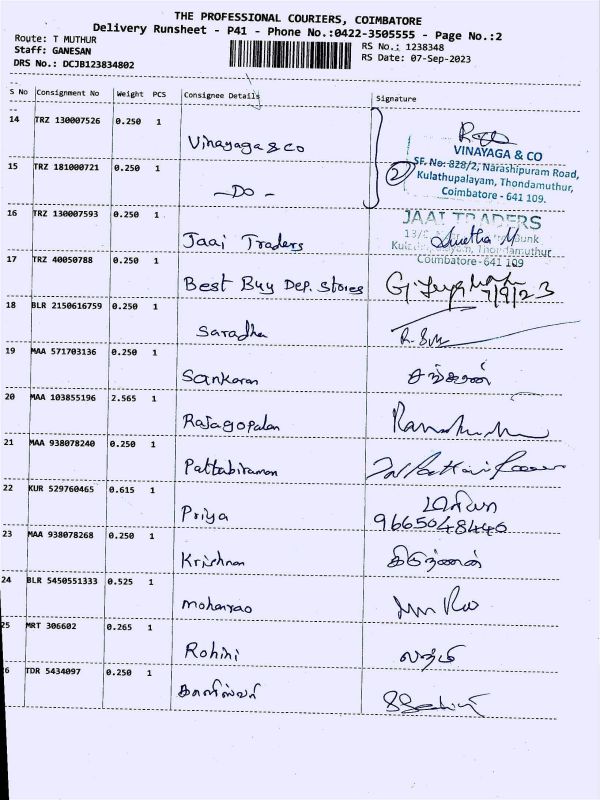 THE PROFESSIONAL COURIERS, COIMBATORE
Delivery Runsheet - P41 - Phone No.:0422-3505555 - Page No.:2
Route: T MUTHUR
RS No.: 1238348
Staff: GANESAN
RS Date: 07-Sep-2023
DRS No.: DCJB123834802
S No Consignment No Weight PCS Consignee Details Signature
14 TRZ 130007526 0.250 1 Vinayaga & co
VINAYAGA & CO
SF. No: 828/2, Narashipuram Road,
Kulathupalayam, Thondamuthur,
Coimbatore - 641 109.
2
15 TRZ 181000721 0.250 1 - Do -
16 TRZ 130007593 0.250 1 Jaai Traders
JAAI TRADERS
Swetha M
Thondamuthur
Coimbatore - 641 109
17 TRZ 40050788 0.250 1 Best Buy Dep. Stores
7/9/23
18 BLR 2150616759 0.250 1 Saradha
19 MAA 571703136 0.250 1 Sankaran
20 MAA 103855196 2.565 1 Rajagopalan
21 MAA 938078240 0.250 1 Pattabiraman
22 KUR 529760465 0.615 1 Priya
9665048440
23 MAA 938078268 0.250 1 Krishnan
24 BLR 5450551333 0.525 1 mohanrao
25 MRT 306602 0.265 1 Rohini
6 TDR 5434097 0.250 1 காளீஸ்வரி